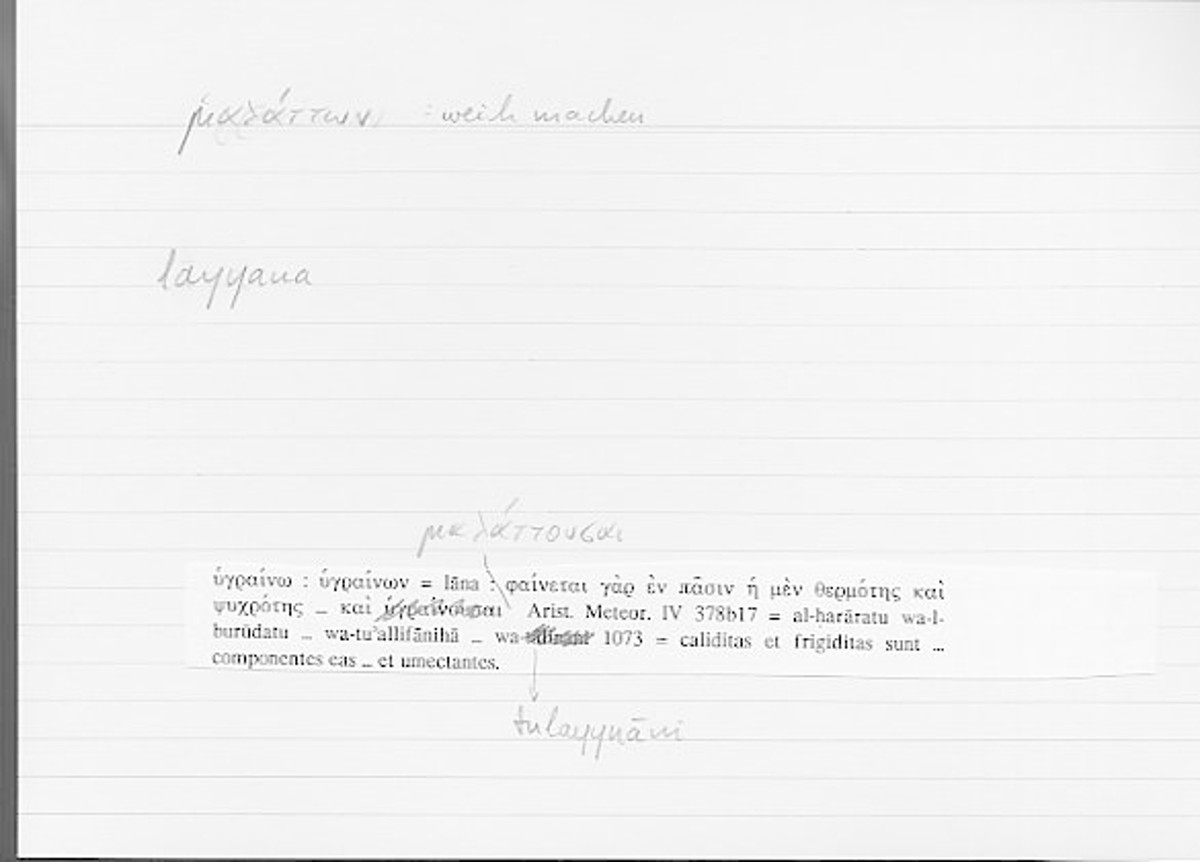 μαλάττων : weich machen
layyana
μαλάττουσαι
ὑγραίνω : ὑγραίνων = lāna : φαίνεται γὰρ ἐν πᾶσιν ἡ μὲν θερμότης καὶ
ψυχρότης ... καὶ ὑγραίνουσαι Arist. Meteor. IV 378b17 = al-ḥarāratu wa-l-
burūdatu ... wa-tuʾallifānihā ... wa- 1073 = caliditas et frigiditas sunt ...
componentes eas ... et umectantes.
tulayyināni